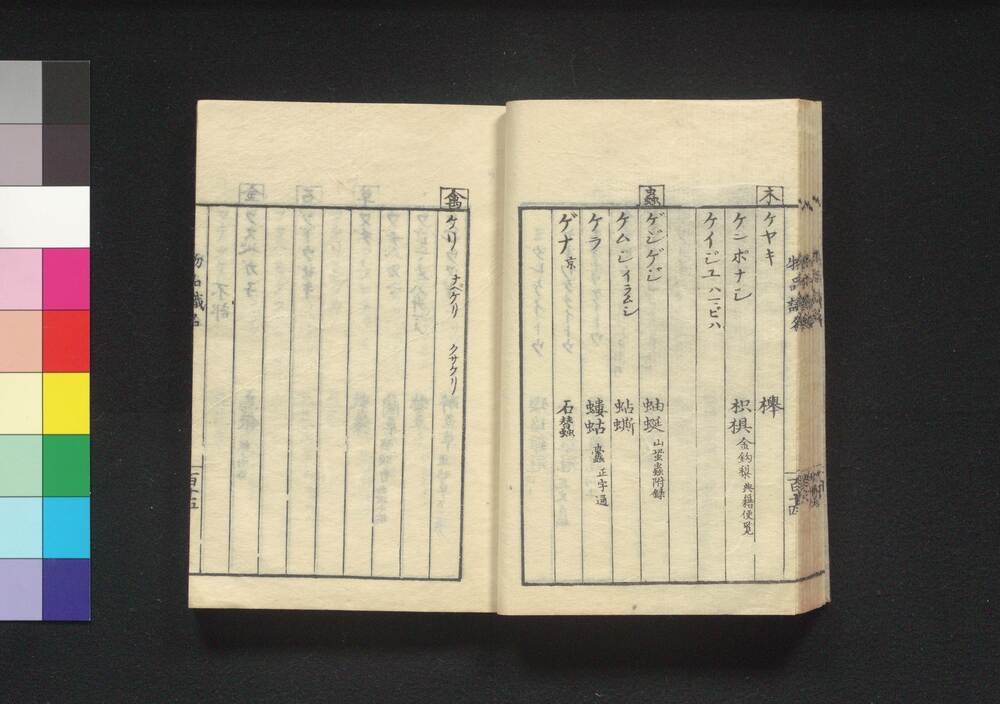 木
ケヤキ 櫸
ケンポナシ 枳椇 金鈎梨 典籍便覧
ケイジユ ハコビハ
蟲
ゲジゲジ 蚰蜒 山蛩蟲附録
ケムシ イラムシ 蛅蟖
ケラ 螻蛄 蠹 正字通
ゲナ 京 石蠶
百十四
禽
ケリ ナベケリ クサケリ
物品識名
百十五